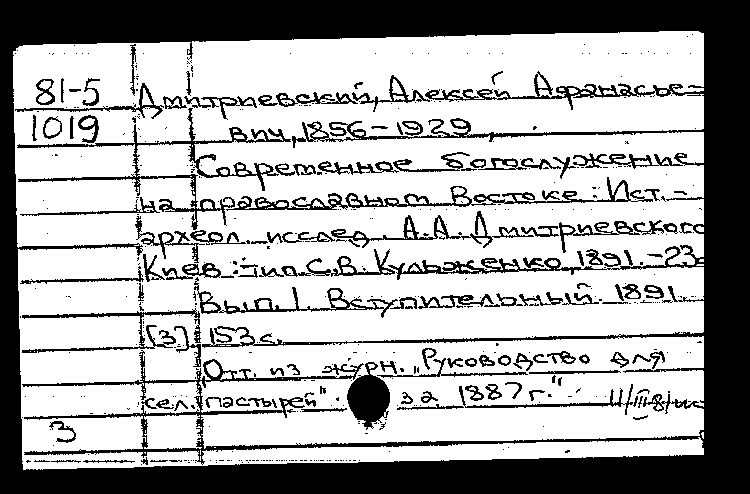 81-5 Дмитриевский, Алексей Афанасье-
1019 вич, 1856-1929,
Современное богослужение
на православном Востоке: Ист.-
археол. исслед. А.А. Дмитриевского
Киев: тип. С.В. Кульженко, 1891.-23
Вып. 1. Вступительный. 1891.
[3], 153 с.
"Отт. из журн. "Руководство для
сел. пастырей" за 1887 г."
3